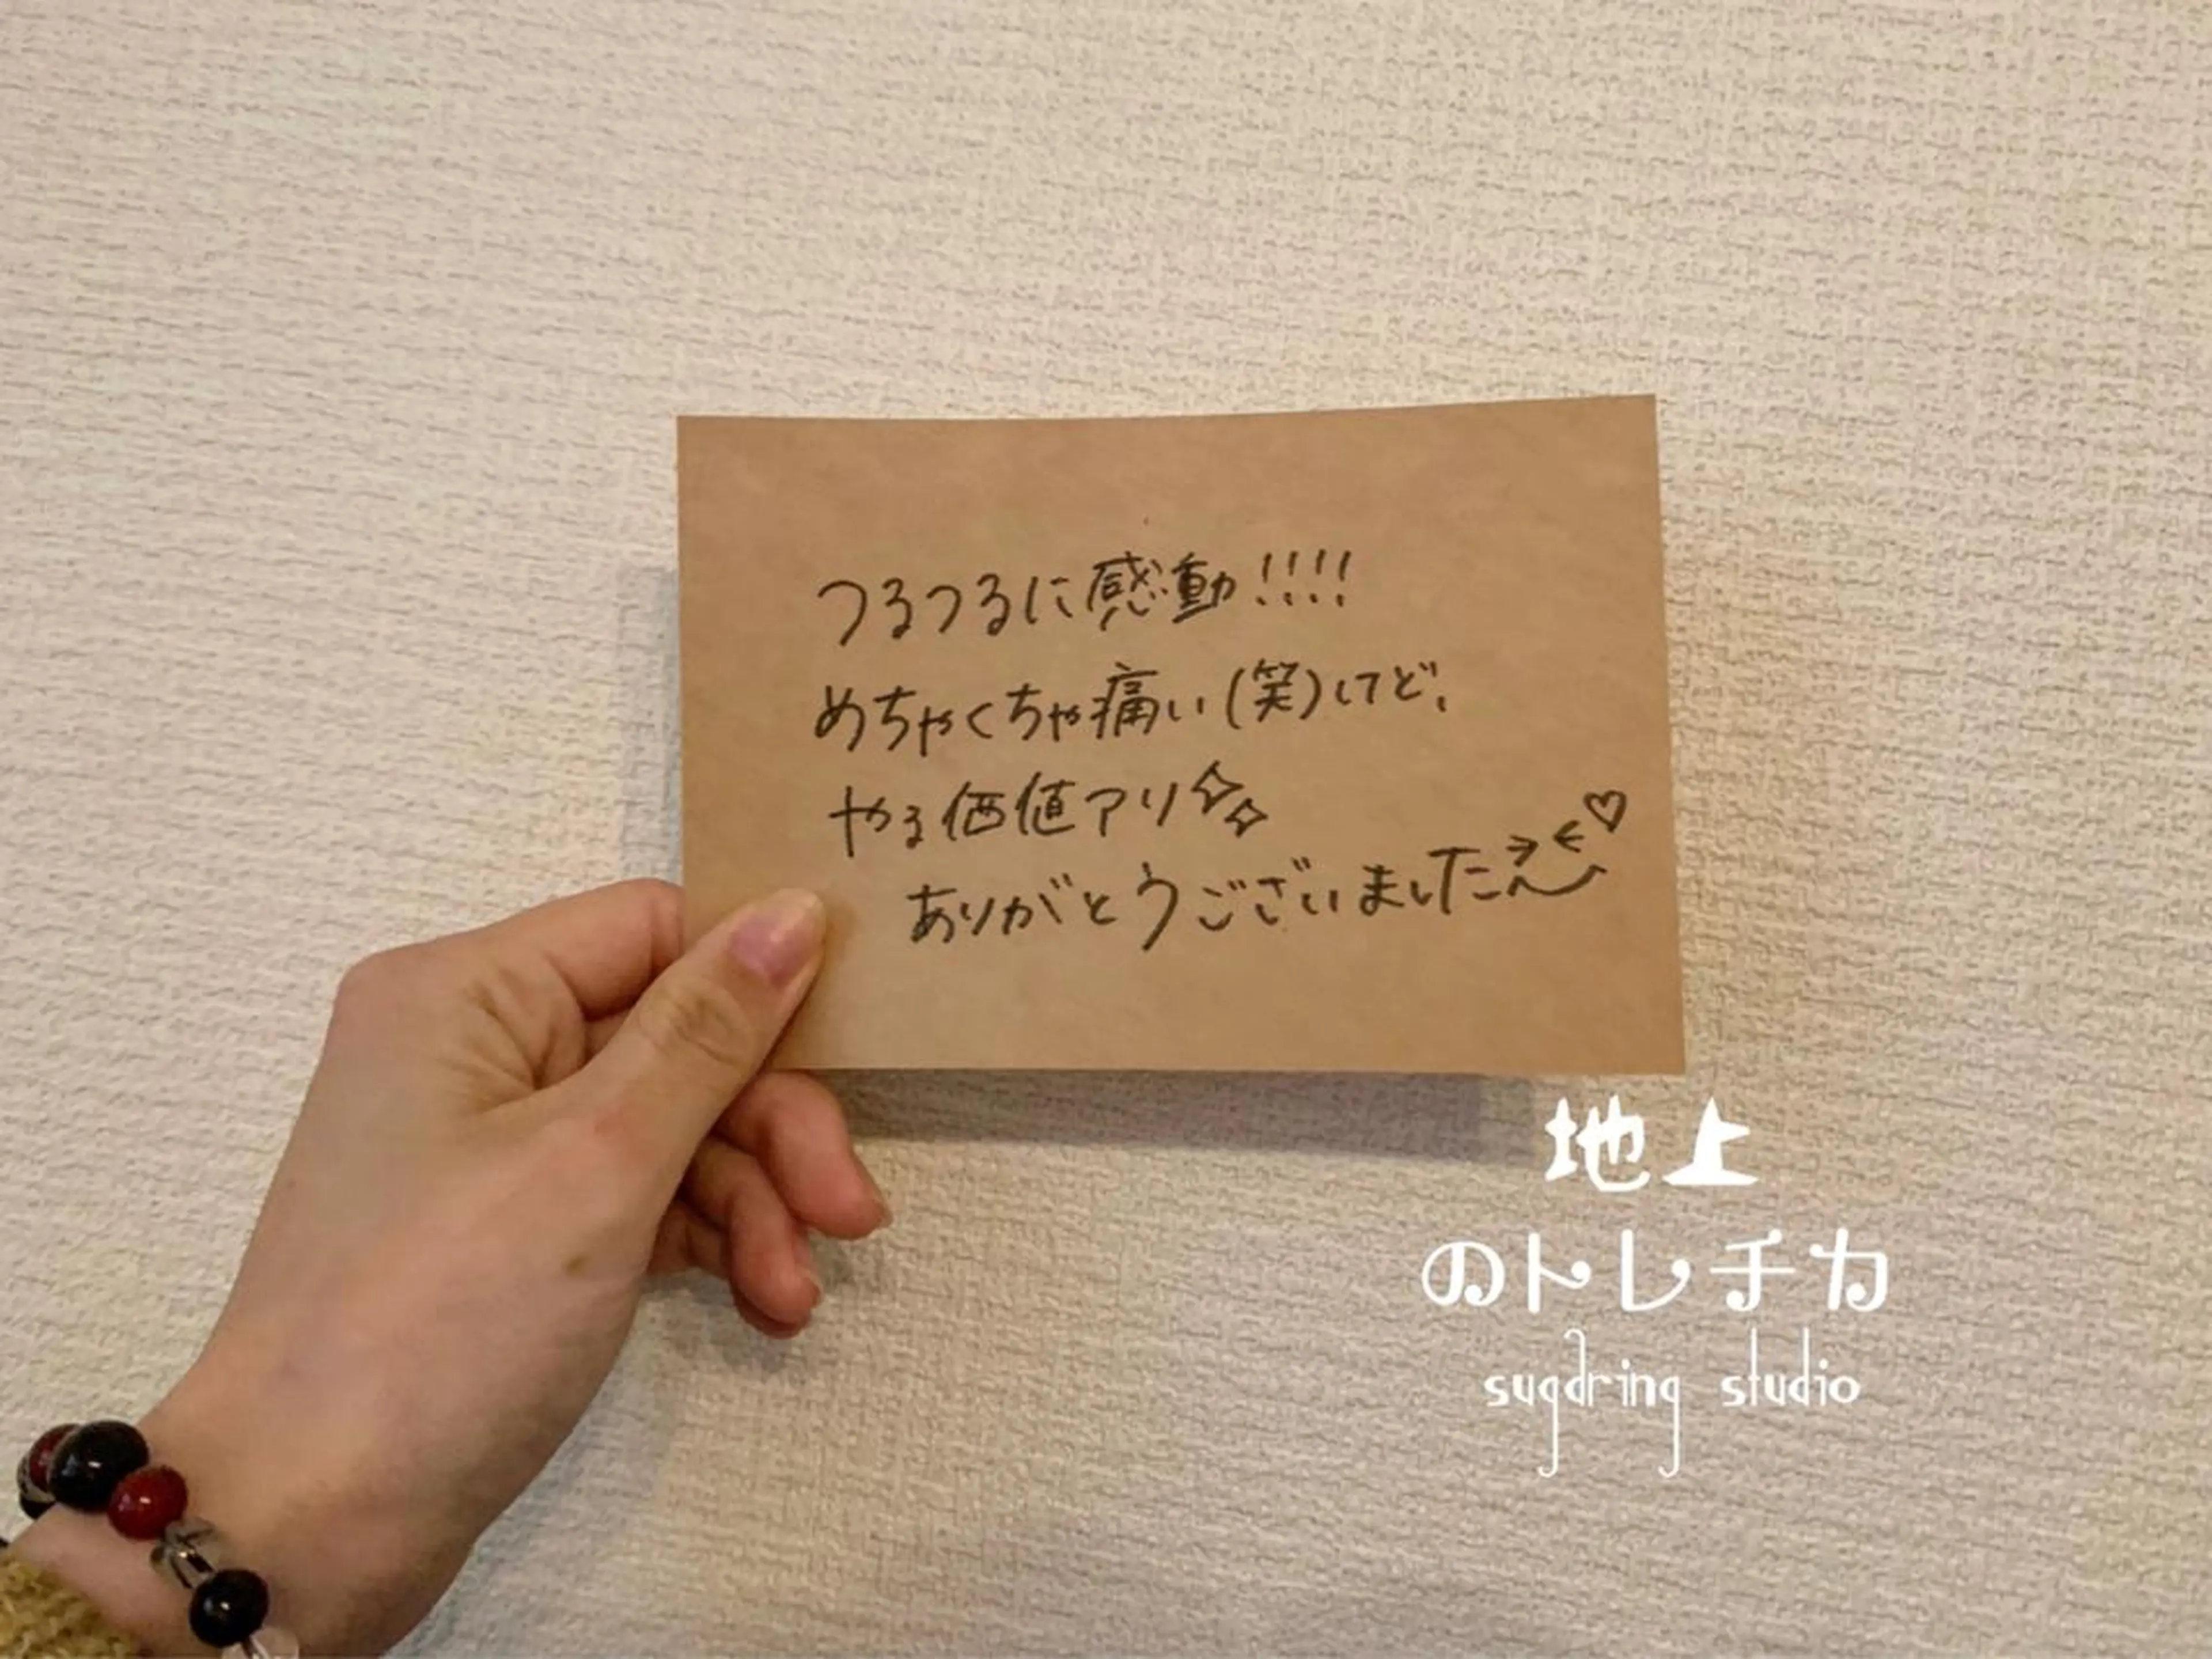 つるつるに感動!!!!
めちゃくちゃ痛い(笑)けど、
やる価値アリ
ありがとうございました
地上
のトレチカ
sugdring studio